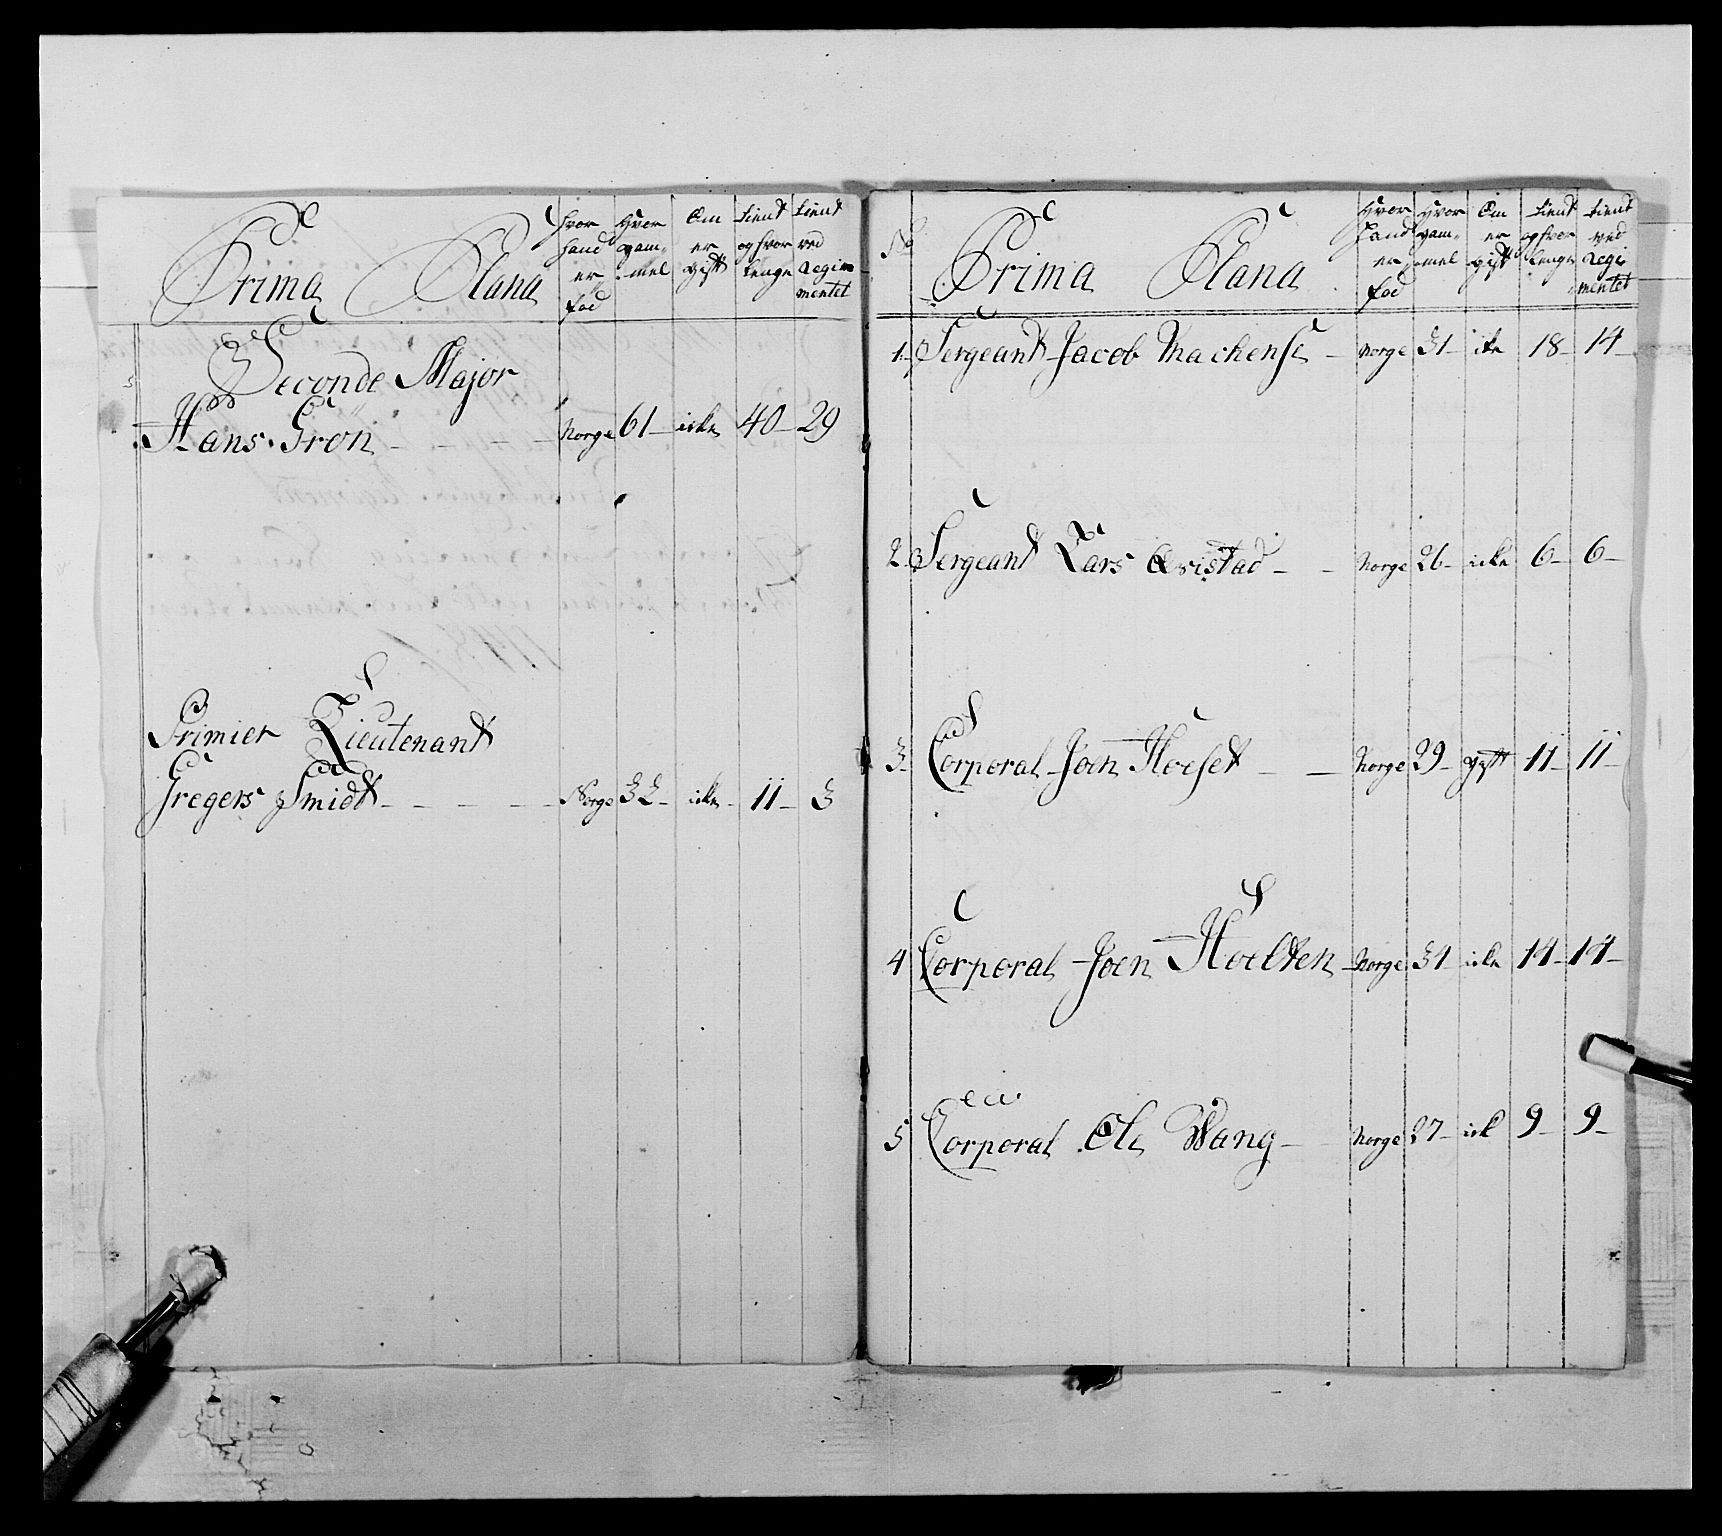 Prima Plana
Hvor hand er fød
Hvor gam= mel
Om er gift
tient og hvor lenge
tient ved Regi= mentet
Seconde Major
Hans Grøn - - - - Norge 61 - icke 40 - 29
Primier Lieutenant
Gregers Smidt - - - - Norge 32 - icke - 11 - 3
No Prima Plana
Hvor hand er fød
Hvor gam= mel
Om er gift
tient og hvor lenge
tient ved Regi= mentet
1. Sergeant Jacob Mackense - Norge 31 - icke 18 - 14 -
2. Sergeant Lars Qvistad - - Norge 26 - icke 6 - 6 -
3. Corporal Joen Hoeset - - Norge 29 - gift 11 - 11 -
4 Corporal Joen Hoelten Norge 34 - icke 14 - 14 -
5 Corporal Ole Wang - Norge 27 - ick 9 - 9 -